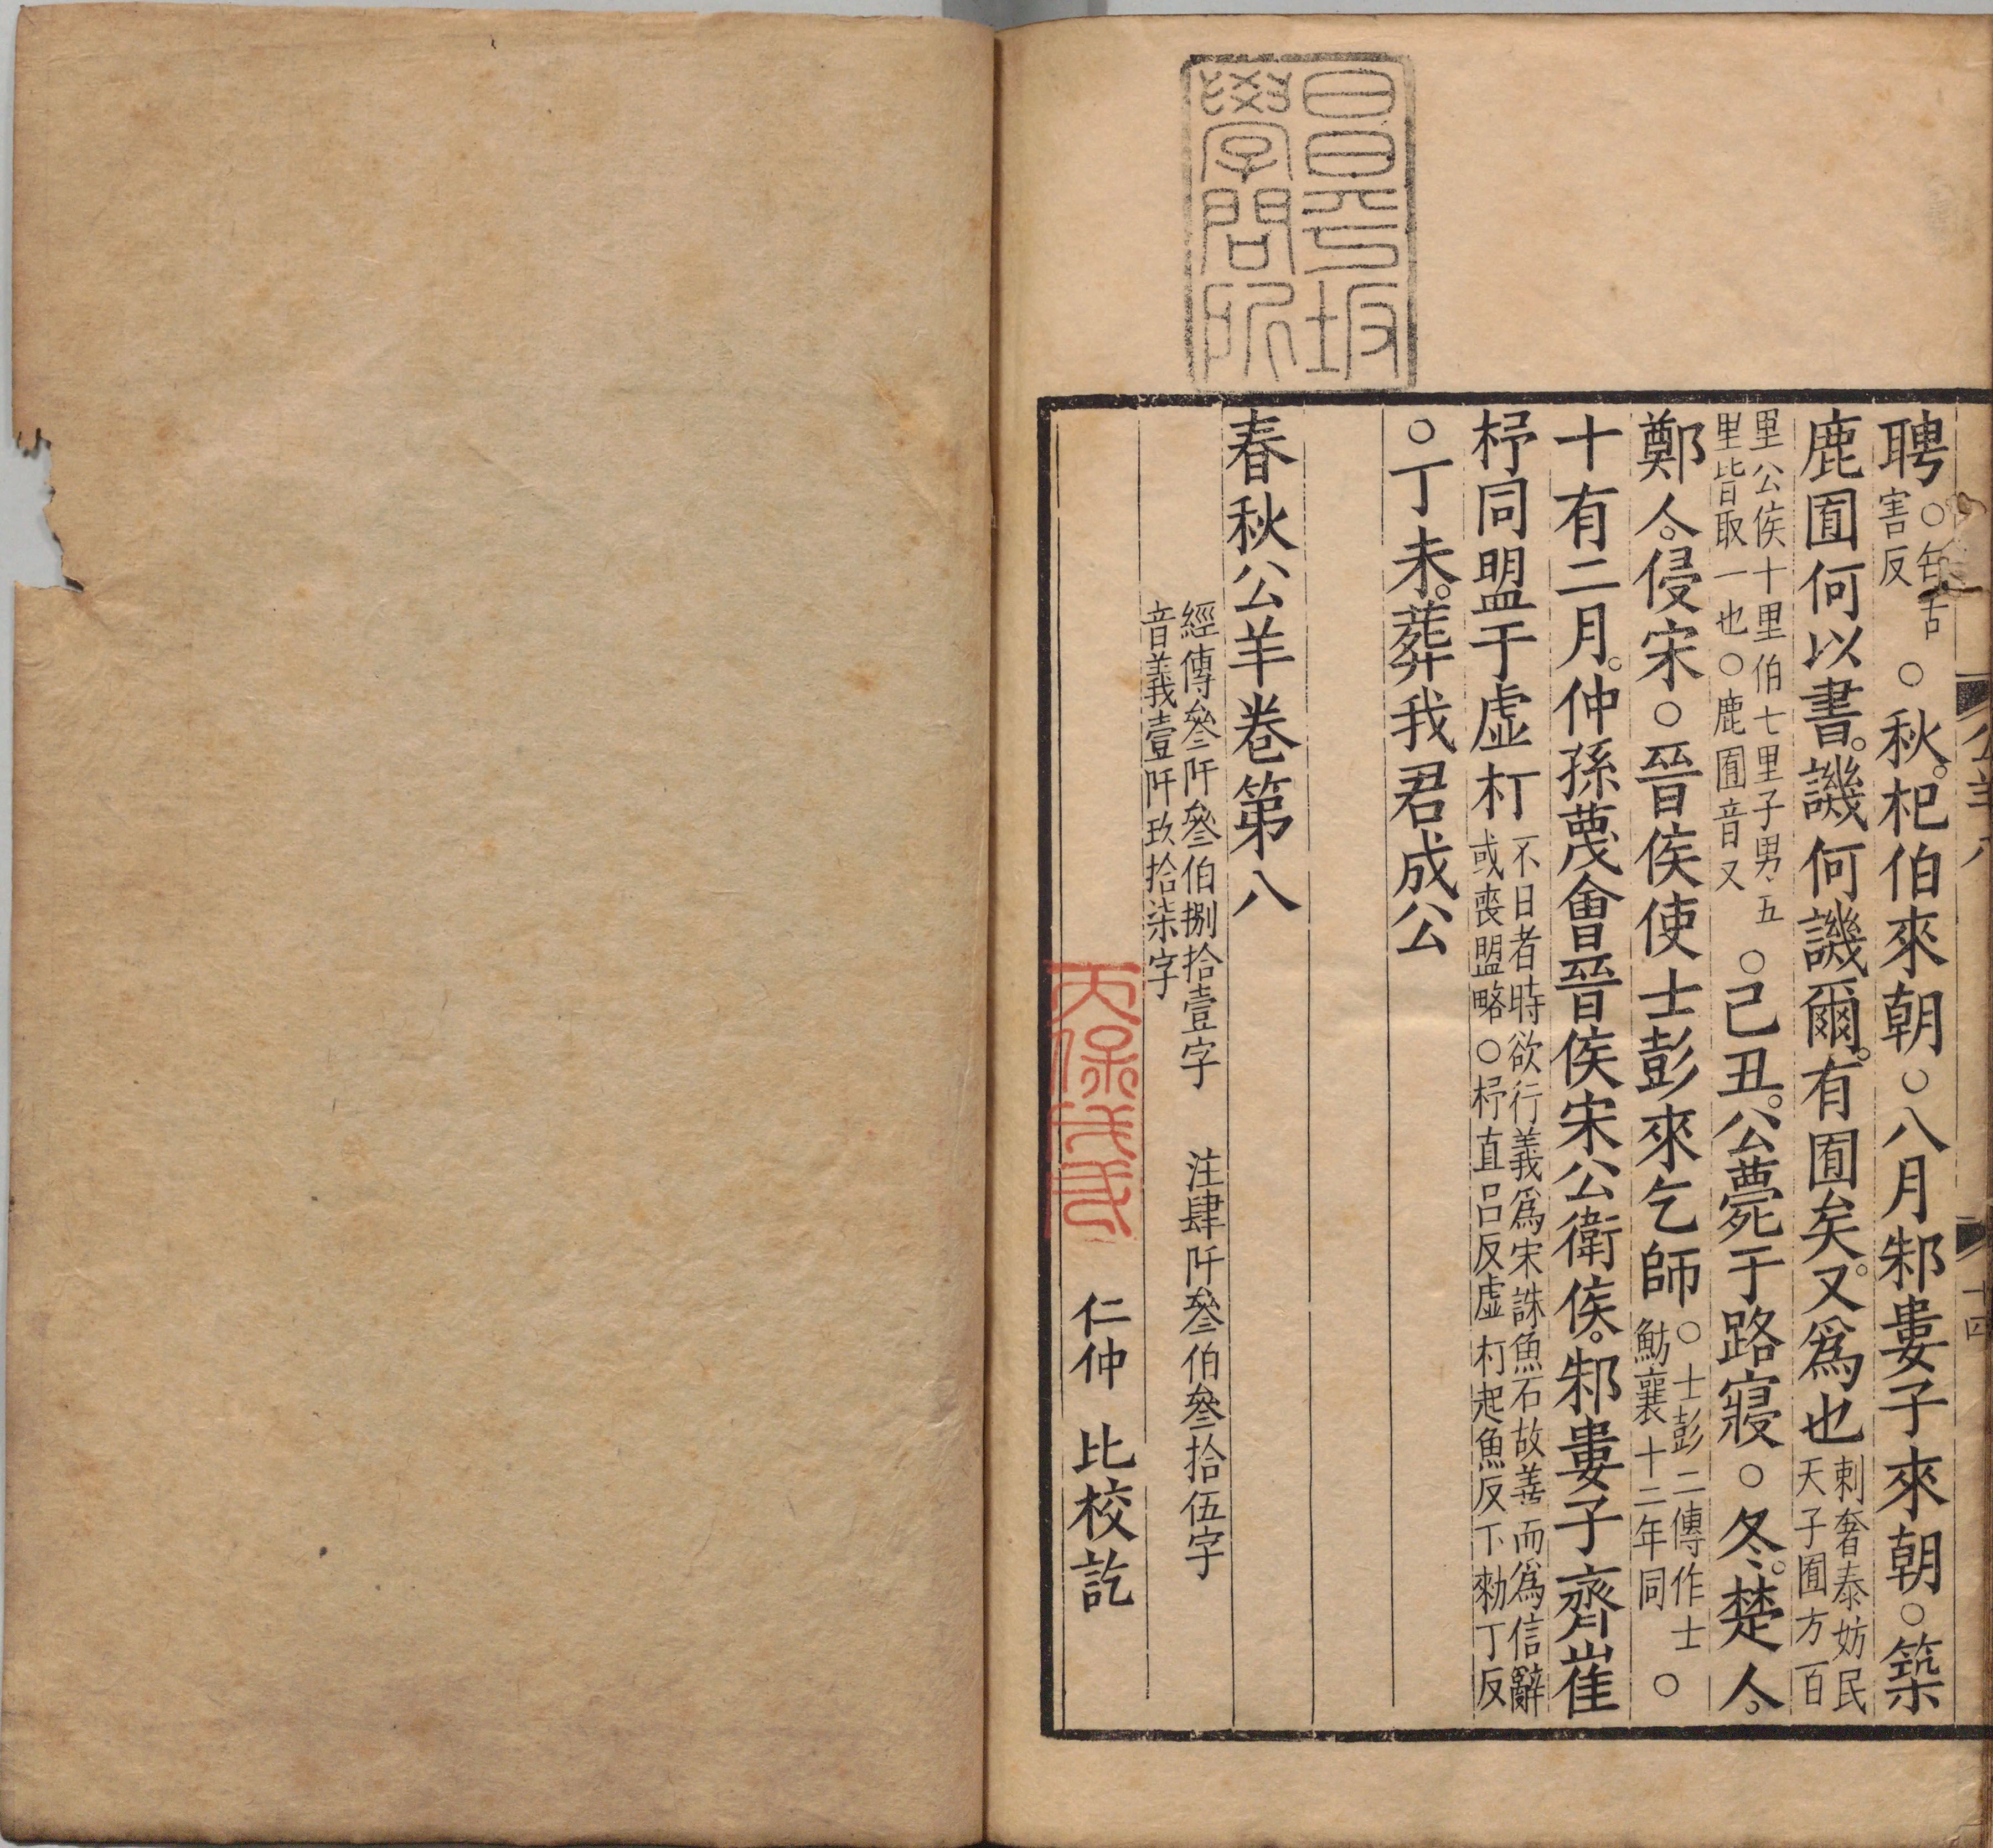 公羊八
十四
聘○匄古害反○秋。杞伯來朝○八月邾婁子來朝○築
鹿囿何以書。譏何譏爾。有囿矣。又爲也刺奢泰妨民天子囿方百
里公侯十里伯七里子男五里皆取一也○鹿囿音又○己丑。公薨于路寢○冬。楚人。
鄭人。侵宋○晉侯使士彭來乞師○士彭二傳作士魴襄十二年同○
十有二月。仲孫蔑會晉侯宋公衛侯。邾婁子齊崔
杼同盟于虛朾不日者時欲行義爲宋誅魚石故善而爲信辭或喪盟略○杼直呂反虛朾起魚反下勑丁反
○丁未。葬我君成公
春秋公羊卷第八
經傳叄阡叄伯捌拾壹字 注肆阡叄伯叄拾伍字
音義壹阡玖拾柒字
仁仲 比校訖
昌平坂
學問所
天保癸卯